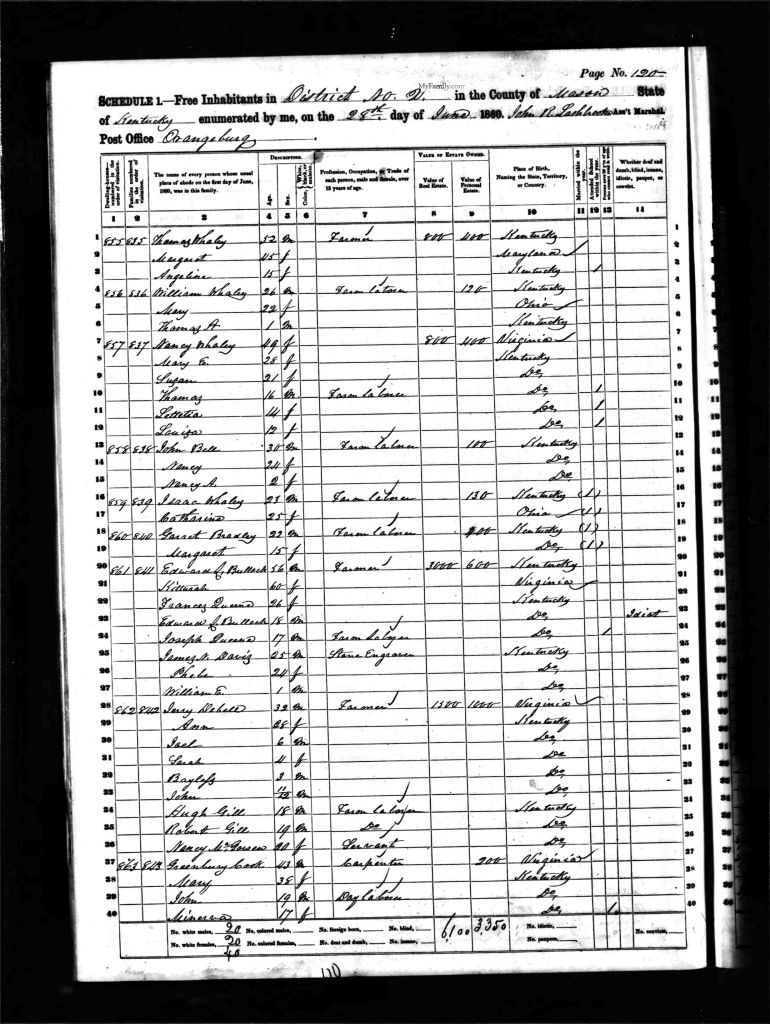 MyFamily.com
Page No. 120
SCHEDULE 1.—Free Inhabitants in District No. 2. in the County of Mason State
of Kentucky enumerated by me, on the 28th day of June 1860. John R Lashbrook Ass't Marshal.
Post Office Orangeburg
Dwelling-houses—numbered in the order of visitation.
Families numbered in the order of visitation.
The name of every person whose usual place of abode on the first day of June, 1860, was in this family.
DESCRIPTION.
Age.
Sex.
Color, White, black, or mulatto.
Profession, Occupation, or Trade of each person, male and female, over 15 years of age.
VALUE OF ESTATE OWNED.
Value of Real Estate.
Value of Personal Estate.
Place of Birth, Naming the State, Territory, or Country.
Married within the year.
Attended School within the year.
Whether deaf and dumb, blind, insane, idiotic, pauper, or convict.
1 2 3 4 5 6 7 8 9 10 11 12 13 14
1 855 835 Thomas Whaley 52 m Farmer 800 400 Kentucky 1
2 Margaret 45 f Maryland 2
3 Angeline 15 f Kentucky 1 3
4 856 836 William Whaley 26 m Farm laborer 120 Kentucky 4
5 Mary 22 f Ohio 5
6 Thomas A 1 m Kentucky 6
7 857 837 Nancy Whaley 49 f 800 400 Virginia 7
8 Mary E. 28 f Kentucky 8
9 Susan 21 f Do, 9
10 Thomas 16 m Farm laborer Do, 1 10
11 Lettetia 14 f Do, 1 11
12 Louisa 12 f Do, 1 12
13 858 838 John Bell 30 m Farm laborer 100 Kentucky 13
14 Nancy 24 f Do, 14
15 Nancy A. 2 f Do, 15
16 859 839 Isaac Whaley 23 m Farm laborer 130 Kentucky (1) 16
17 Catharine 25 f Ohio (1) 17
18 860 840 Garret Bradley 22 m Farm laborer 200 Kentucky (1) 18
19 Margaret 15 f Do, (1) 19
20 861 841 Edward J Bullock 56 m Farmer 3000 600 Kentucky 20
21 60 f Virginia 21
22 Frances Queens 26 f Kentucky 22
23 Edward J Bullock 18 m Do, Idiot 23
24 Joseph Queens 17 m Farm laborer Do, 1 24
25 James N. Davis 25 m Stone Engraver Kentucky 25
26 Phebe 24 f Do, 26
27 William E. 1 m Do, 27
28 862 842 Jerry Debell 32 m Farmer 1500 1000 Virginia 28
29 Ann 28 f Kentucky 29
30 Joel 6 m Do, 30
31 Sarah 4 f Do 31
32 Bayless 3 m Do, 32
33 John 11/12 m Do, 33
34 Hugh Gill 18 m Farm laborer Kentucky 34
35 Robert Gill 19 m Do Do, 35
36 Nancy 20 f Servant Do, 36
37 863 843 Greenbury Cook 43 m Carpenter 200 Virginia 37
38 Mary 38 f Kentucky 38
39 John 19 m Day laborer Do, 39
40 Minerva 17 f Do, 1 40
No. white males, 20 No. colored males, No. foreign born, No. blind, 6,100 3,350 No. idiotic, No. convicts,
No. white females, 20 No. colored females, No. deaf and dumb, No. insane, No. paupers,
40
110